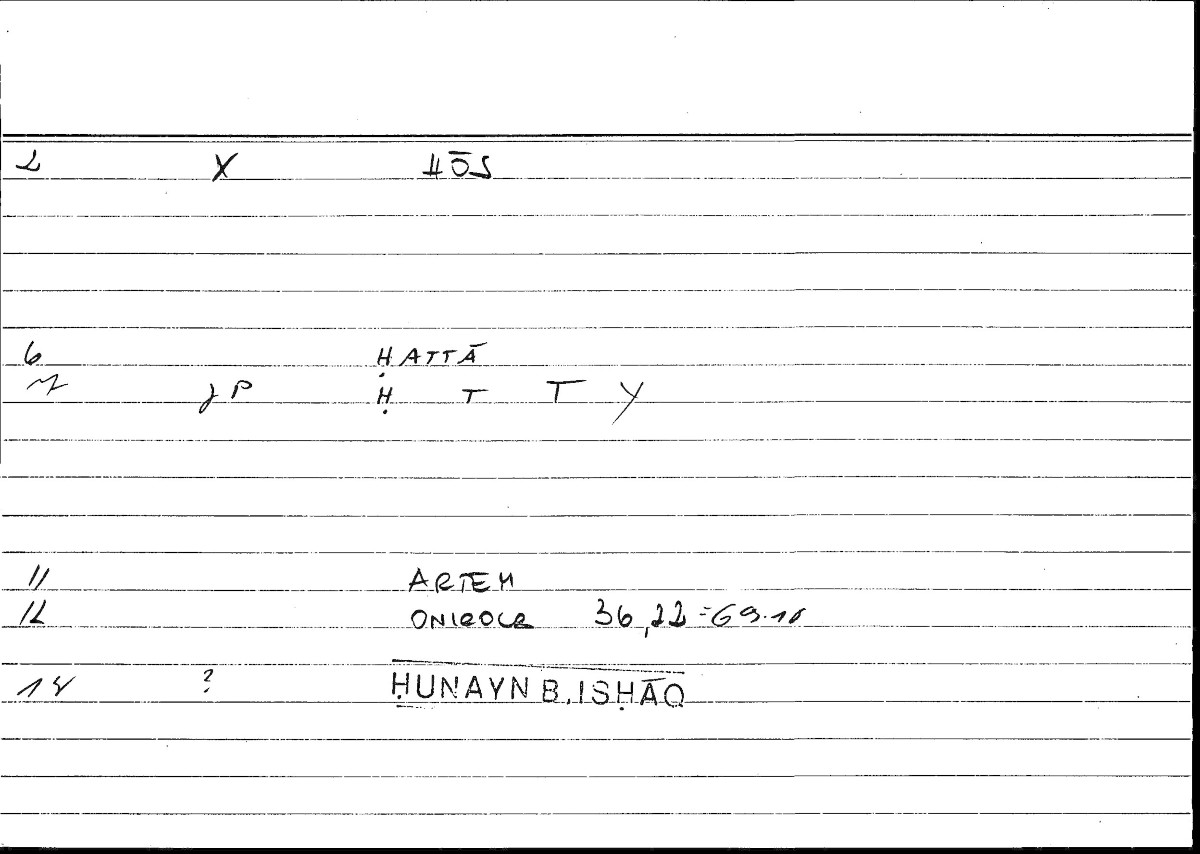 2 X HŌS
6 ḤATTĀ
7 JP Ḥ T T Y
11 ARTEM
12 ONIROCR 36,22=69.16
18 ? ḤUNAYN B.ISḤĀQ